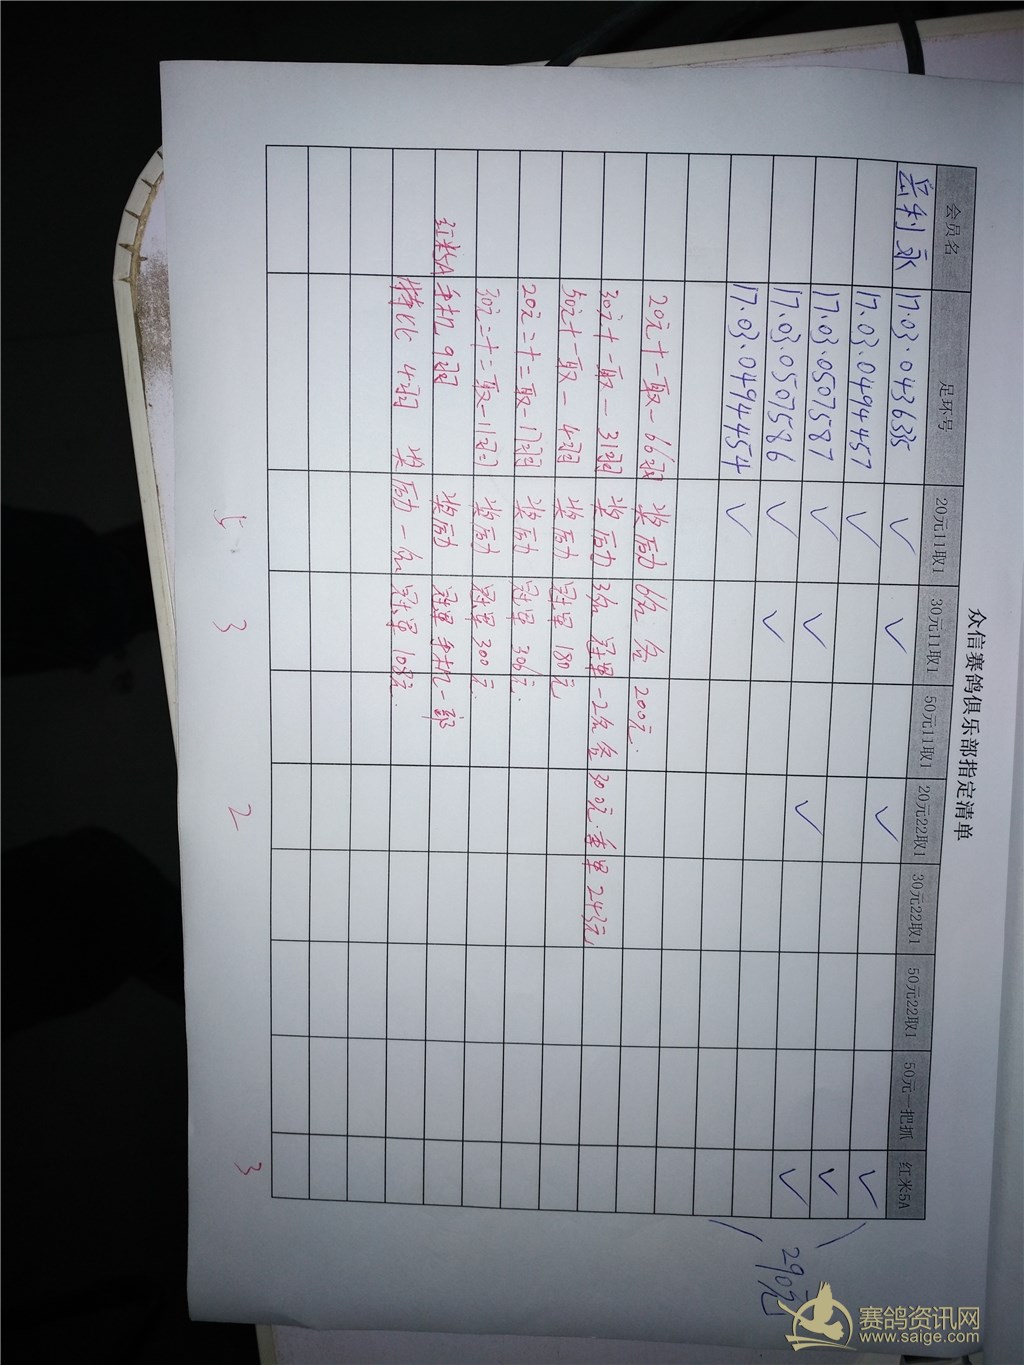 众信赛鸽俱乐部指定清单
会员名 足环号 20元11取1 30元11取1 50元11取1 20元22取1 30元22取1 50元22取1 50元一把抓 红米5A
岳利永 17.03.043635 ✓ ✓
17.03.0494457 ✓ ✓ ✓
17.03.0507587 ✓ ✓ ✓
17.03.0507586 ✓ ✓ ✓ ✓
17.03.0494454 ✓
20元十一取一 66羽 奖励 6名 各 200元.
30元十一取一 31羽 奖励 3名 冠军-2名各 300元.季军 243元
50元十一取一 4羽 奖励 冠军 180元
20元二十二取一 17羽 奖励 冠军 306元.
30元二十二取一 奖励 冠军 300元
红米5A手机 9羽 奖励 冠军手机一部
特比 4羽 奖励一名 冠军 108元.
5 3 2 3
290元
赛鸽资讯网
www.saige.com